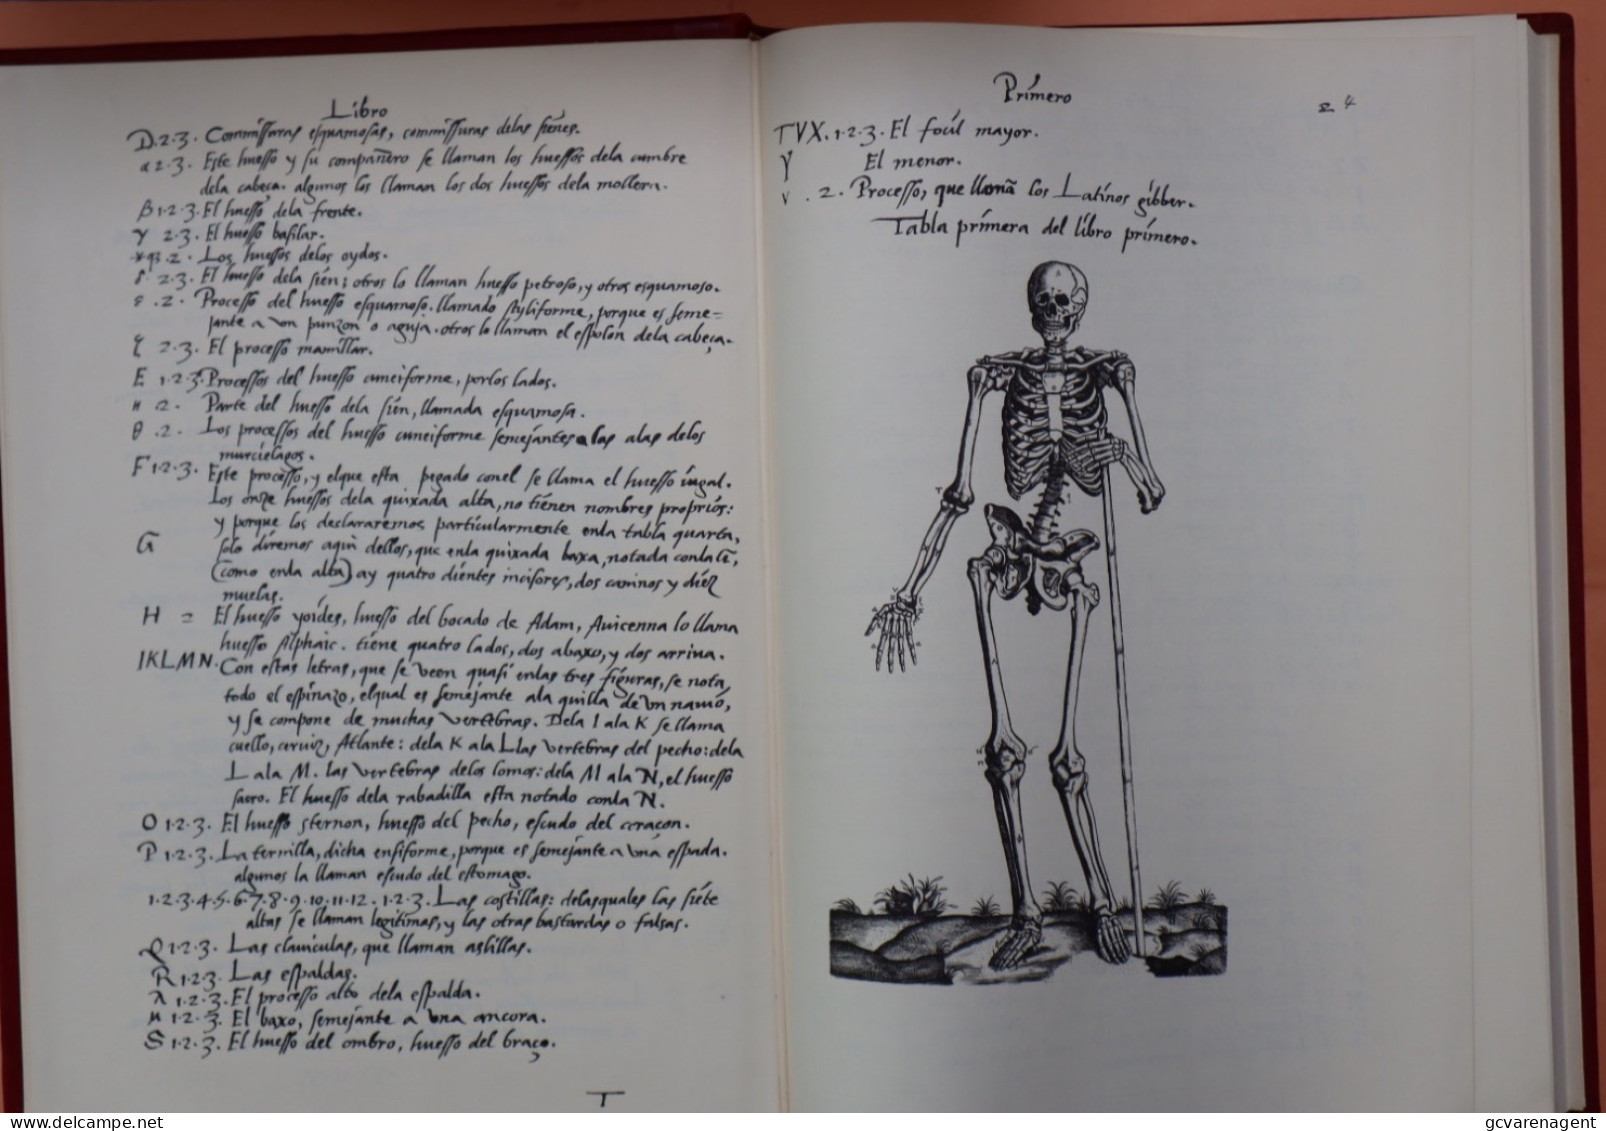 Libro
D.2.3. Commissuras esquamosas, commissuras delas sienes.
α 2.3. Este huesso y su compañero se llaman los huessos dela cumbre
dela cabeça. algunos los llaman los dos huessos dela mollera.
β 1.2.3. El huesso dela frente.
γ 2.3. El huesso basilar.
.2. Los huessos delos oydos.
δ 2.3. El huesso dela sién; otros lo llaman huesso petroso, y otros esquamoso.
ε .2. Processo del huesso esquamoso. llamado styliforme, porque es seme=
jante a vn punzon o aguja. otros lo llaman el espolon dela cabeça.
ζ 2.3. El processo mamillar.
E 1.2.3. Processos del huesso cuneiforme, por los lados.
η .2. Parte del huesso dela sién, llamada esquamosa.
θ .2. Los processos del huesso cuneiforme semejantes a las alas delos
murciélagos.
F 1.2.3. Este processo, y elque esta pegado conel se llama el huesso iugal.
Los onze huessos dela quixada alta, no tienen nombres proprios:
y porque los declararemos particularmente enla tabla quarta,
G solo diremos aqui dellos, que enla quixada baxa, notada conla G,
(como enla alta) ay quatro dientes incisores, dos caninos y diez
muelas.
H = El huesso yoídes, huesso del bocado de Adam, Auicenna lo llama
huesso Alphaic. tiene quatro lados, dos abaxo, y dos arriua.
IKLMN. Con estas letras, que se veen quasi enlas tres figuras, se nota
todo el espinazo, elqual es semejante ala quilla de vn nauío,
y se compone de muchas vertebras. Dela I ala K se llama
cuello, ceruiz, Atlante: dela K ala L las vertebras del pecho: dela
L ala M. las vertebras delos lomos: dela M ala N, el huesso
sacro. El huesso dela rabadilla esta notado conla N.
O 1.2.3. El huesso sternon, huesso del pecho, escudo del coraçon.
P 1.2.3. La ternilla, dicha ensiforme, porque es semejante a vna espada.
algunos la llaman escudo del estomago.
1.2.3.4.5.6.7.8.9.10.11.12. 1.2.3. Las costillas: delasquales las siete
altas se llaman legitimas, y las otras bastardas o falsas.
Q 1.2.3. Las clauiculas, que llaman aslillas.
R 1.2.3. Las espaldas.
λ 1.2.3. El processo alto dela espalda.
μ 1.2.3. El baxo, semejante a vna ancora.
S 1.2.3. El huesso del ombro, huesso del braço.
T
Primero
4
TVX. 1.2.3. El focil mayor.
Y El menor.
ν .2. Processo, que llamã los Latinos gibber.
Tabla primera del libro primero.
delcampe.net
gcvarenagent